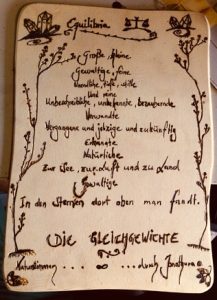 Equilibria
In Große, kleine
Gewaltige, feine
tiefe, stille
Und eine
Unbeschreibliche, unbekannte, bezaubernde
Verwandte
Vergangene und jetzige und zukünftig
Erkannte
Natürliche
Zur See, zur Luft und zu Land
Gewaltige
In den Sternen dort oben man fandt.
DIE GLEICHGEWICHTE
Naturstimmen .... ∞ .... durch